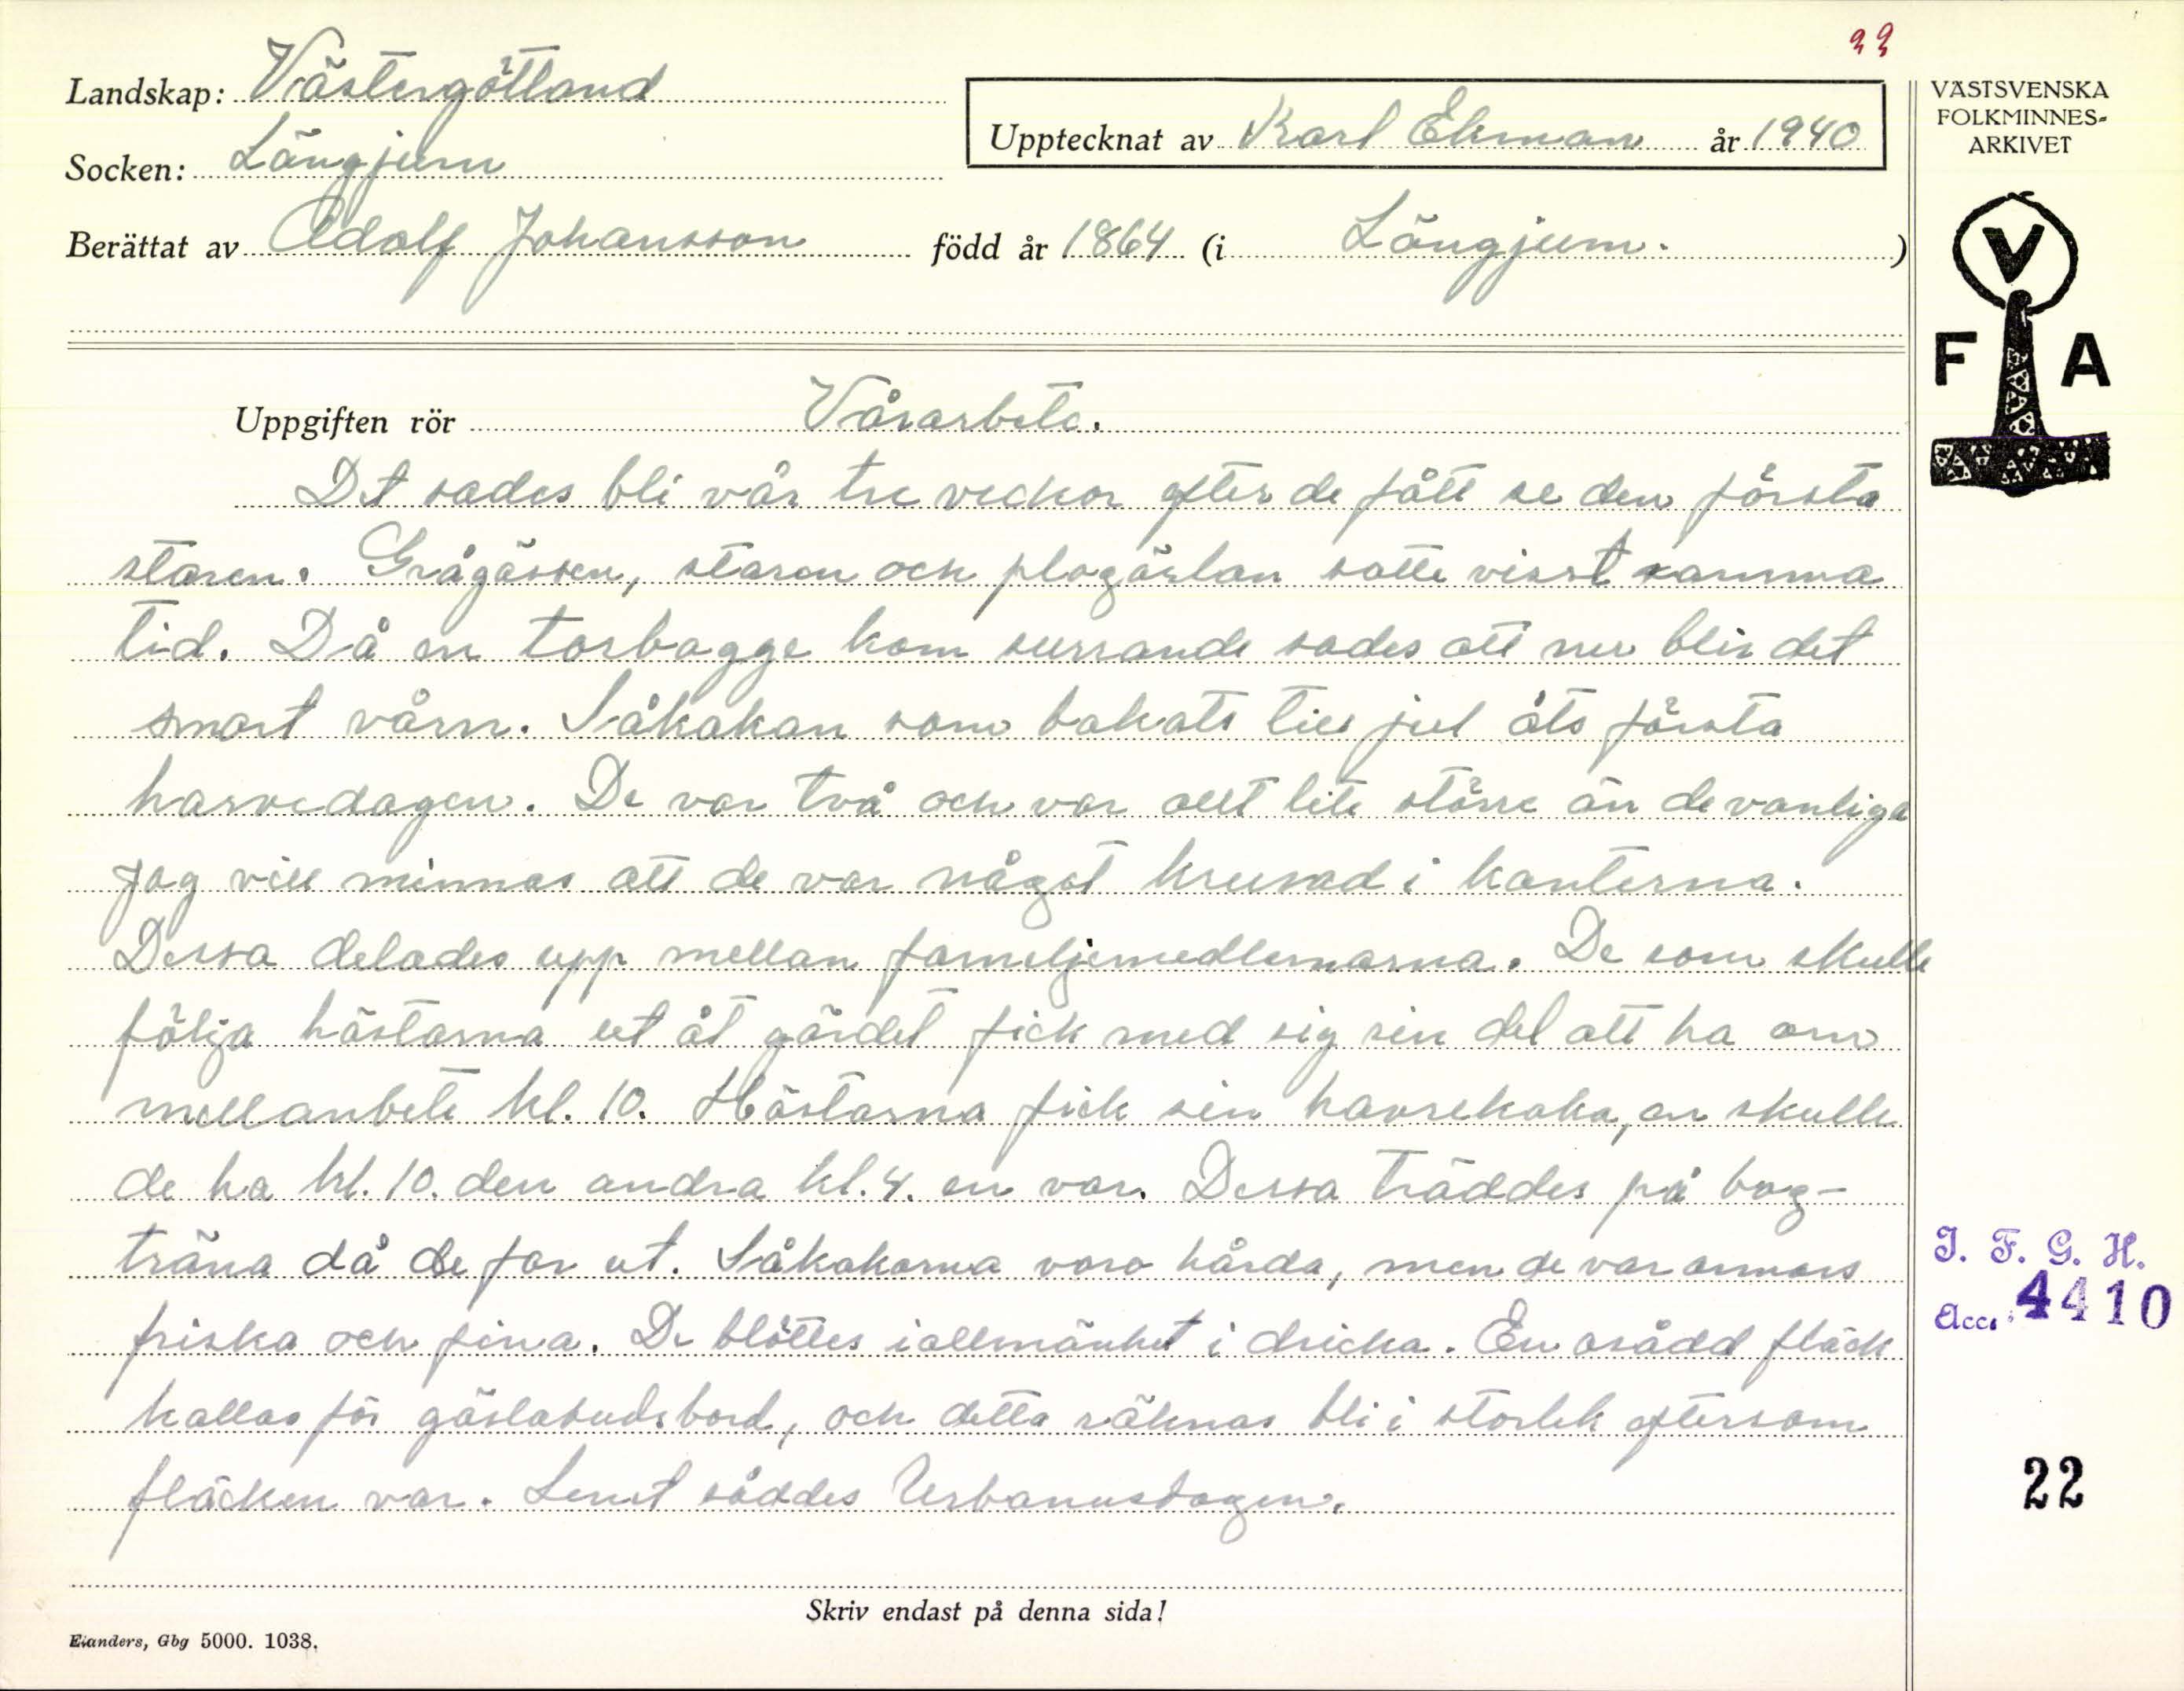 22
Landskap: Västergötland
Upptecknat av Karl Ekman år 1940
Socken: Längjum
Berättat av Adolf Johansson född år 1864 (i Längjum.)
VÄSTSVENSKA
FOLKMINNES-
ARKIVET
V
F A
Uppgiften rör Vårarbete.
Det sades bli vår tre veckor efter de fått se den första
staren. Grågässen, staren och plogärlan satte visst samma
tid. Då en torbagge kom surrande sades att nu blir det
snart vårn. Såkakan som bakats till jul åts första
harvedagen. De var två och var allt lite större än de vanliga
Jag vill minnas att de var något krusad i kanterna.
Dessa delades upp mellan familjemedlemarna. De som skulle
följa hästarna ut åt gärdet fick med sig sin del att ha om
mellanbete kl. 10. Hästarna fick sin havrekaka, en skulle
de ha kl. 10. den andra kl. 4. en var. Dessa träddes på bog-
träna då de for ut. Såkakorna voro hårda, men de var annars
friska och fina. De blöttes i allmänhet i dricka. En osådd fläck
kallas för gästabudsbord, och detta räknas bli i storlek eftersom
fläcken var. Linet såddes Urbanusdagen.
I. F. G. H.
Acc. 4410
22
Skriv endast på denna sida!
Elanders, Gbg 5000. 1038.